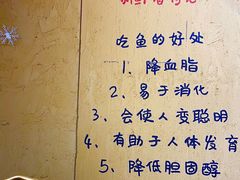 吃鱼的好处
1、降血脂
2、易于消化
3、会使人变聪明
4、有助于人体发育
5、降低胆固醇